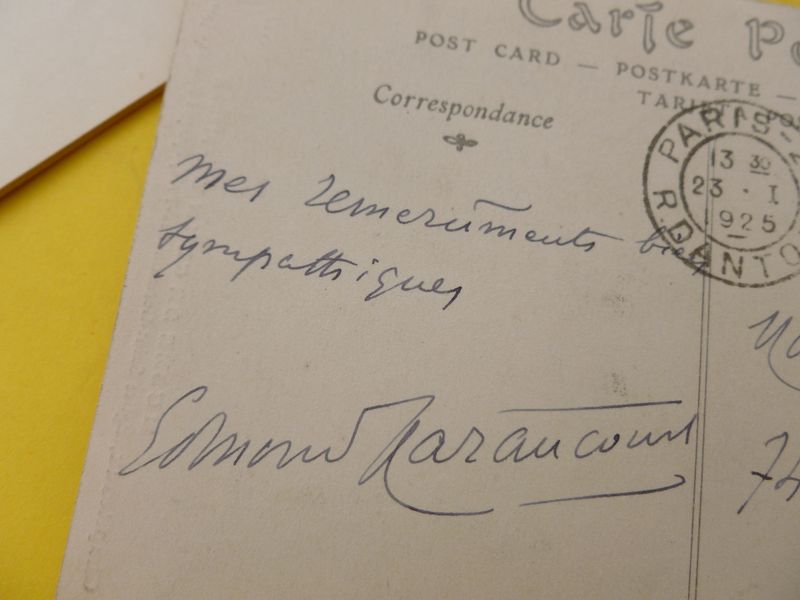 Carte Po
POST CARD — POSTKARTE —
TARJETA POS
Correspondance
PARIS-2
13 30
23 · I
1925
R. DANTO
Mes remerciments bien
sympathiques
Edmond Haraucourt
74